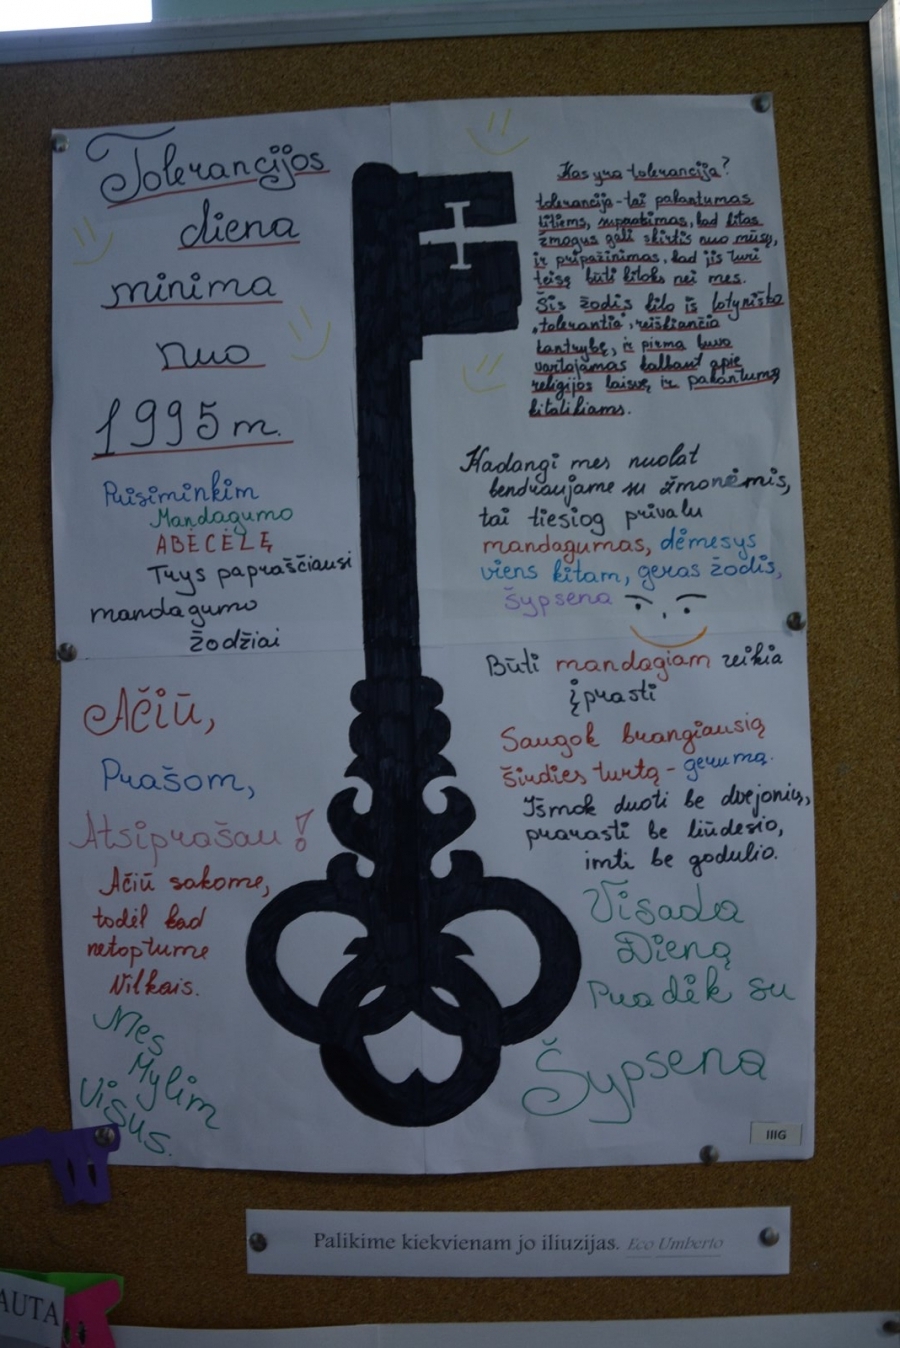 Tolerancijos
diena
minima
nuo
1995 m.
Prisiminkim
Mandagumo
ABĖCĖLĘ
Trys paprasčiausi
mandagumo
žodžiai
Ačiū,
Prašom,
Atsiprašau!
Ačiū sakome,
todėl kad
netoptume
Vilkais.
Mes
Mylim
Visus.
Kas yra tolerancija?
tolerancija - tai pakantumas
kitiems, supratimas, kad kitas
žmogus gali skirtis nuo mūsų,
ir pripažinimas, kad jis turi
teisę būti kitoks nei mes.
Šis žodis kilo iš lotyniško
„tolerantia", reiškiančio
kantrybę, ir pirma buvo
vartojamas kalbant apie
religijos laisvę ir pakantumą
kitatikiams.
Kadangi mes nuolat
bendraujame su žmonėmis,
tai tiesiog privalu
mandagumas, dėmesys
viens kitam, geras žodis,
šypsena
Būti mandagiam reikia
įprasti
Saugok brangiausią
širdies turtą - gerumą.
Išmok duoti be dvejonių,
prarasti be liūdesio,
imti be godulio.
Visada
Dieną
Pradėk su
Šypsena
IIIG
Palikime kiekvienam jo iliuzijas. Eco Umberto
AUTA